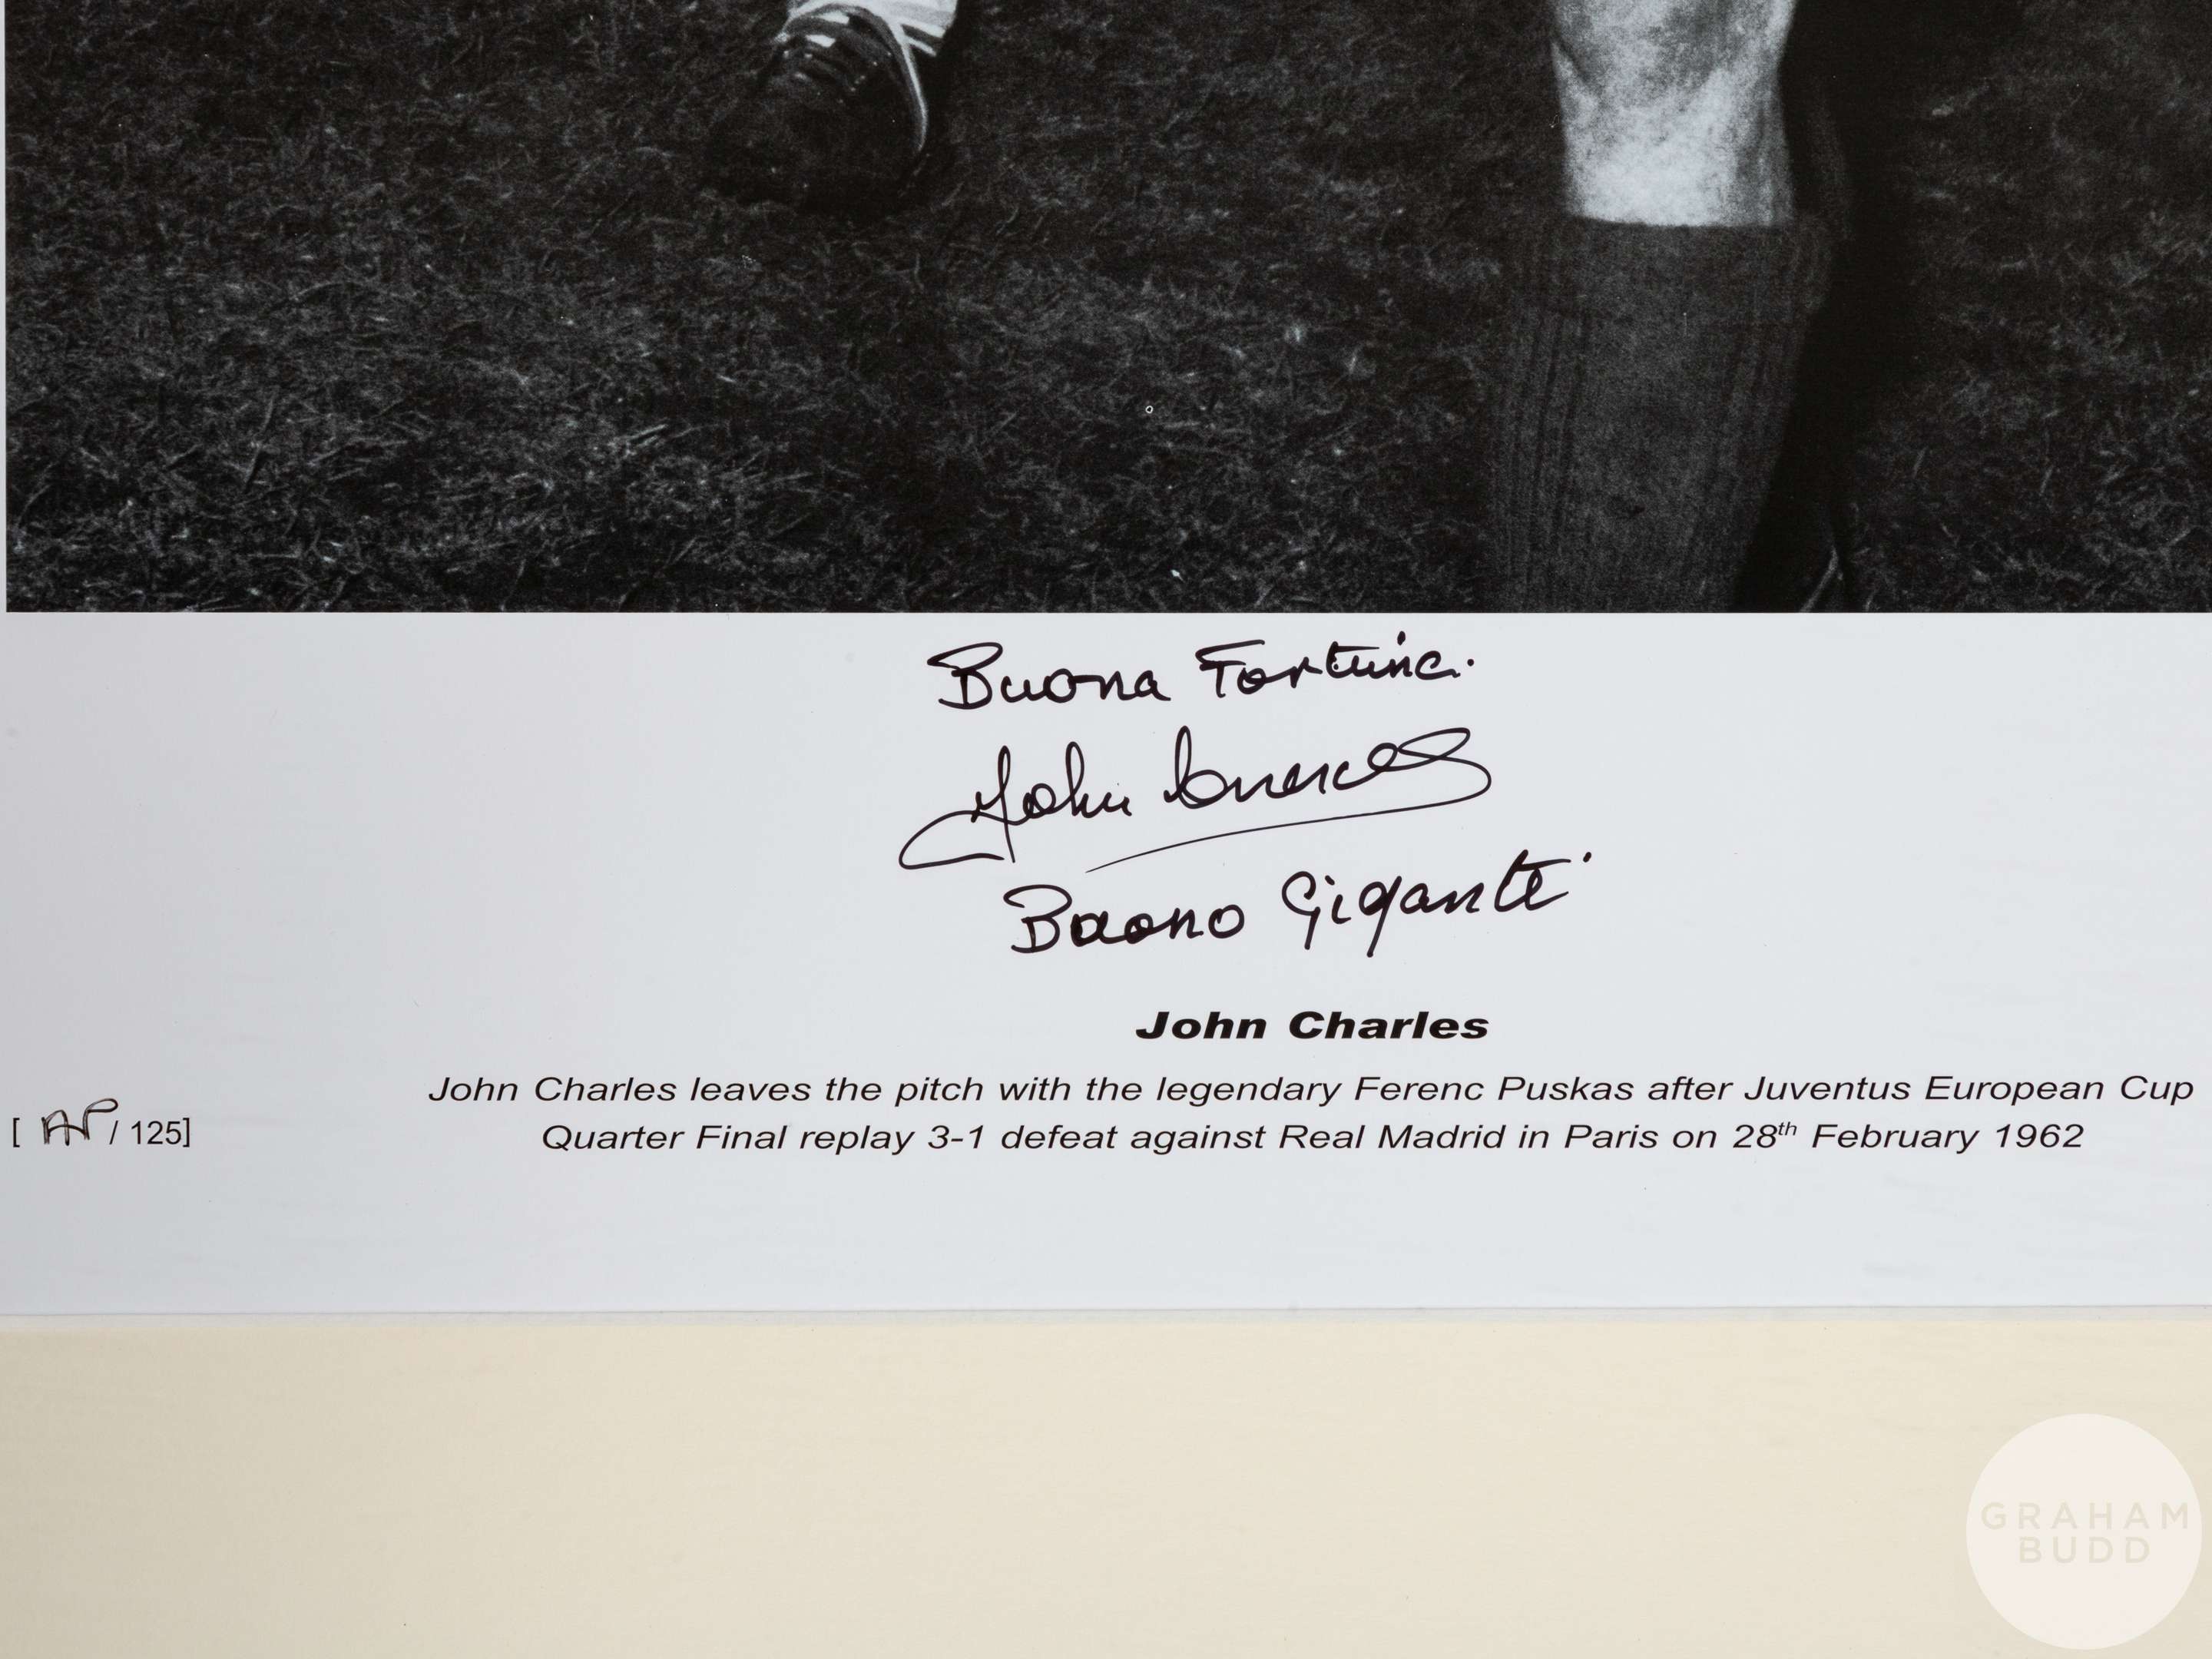 Buona Fortuna.
John Charles
Buono Gigante
John Charles
John Charles leaves the pitch with the legendary Ferenc Puskas after Juventus European Cup
Quarter Final replay 3-1 defeat against Real Madrid in Paris on 28th February 1962
[ AP / 125]
GRAHAM
BUDD